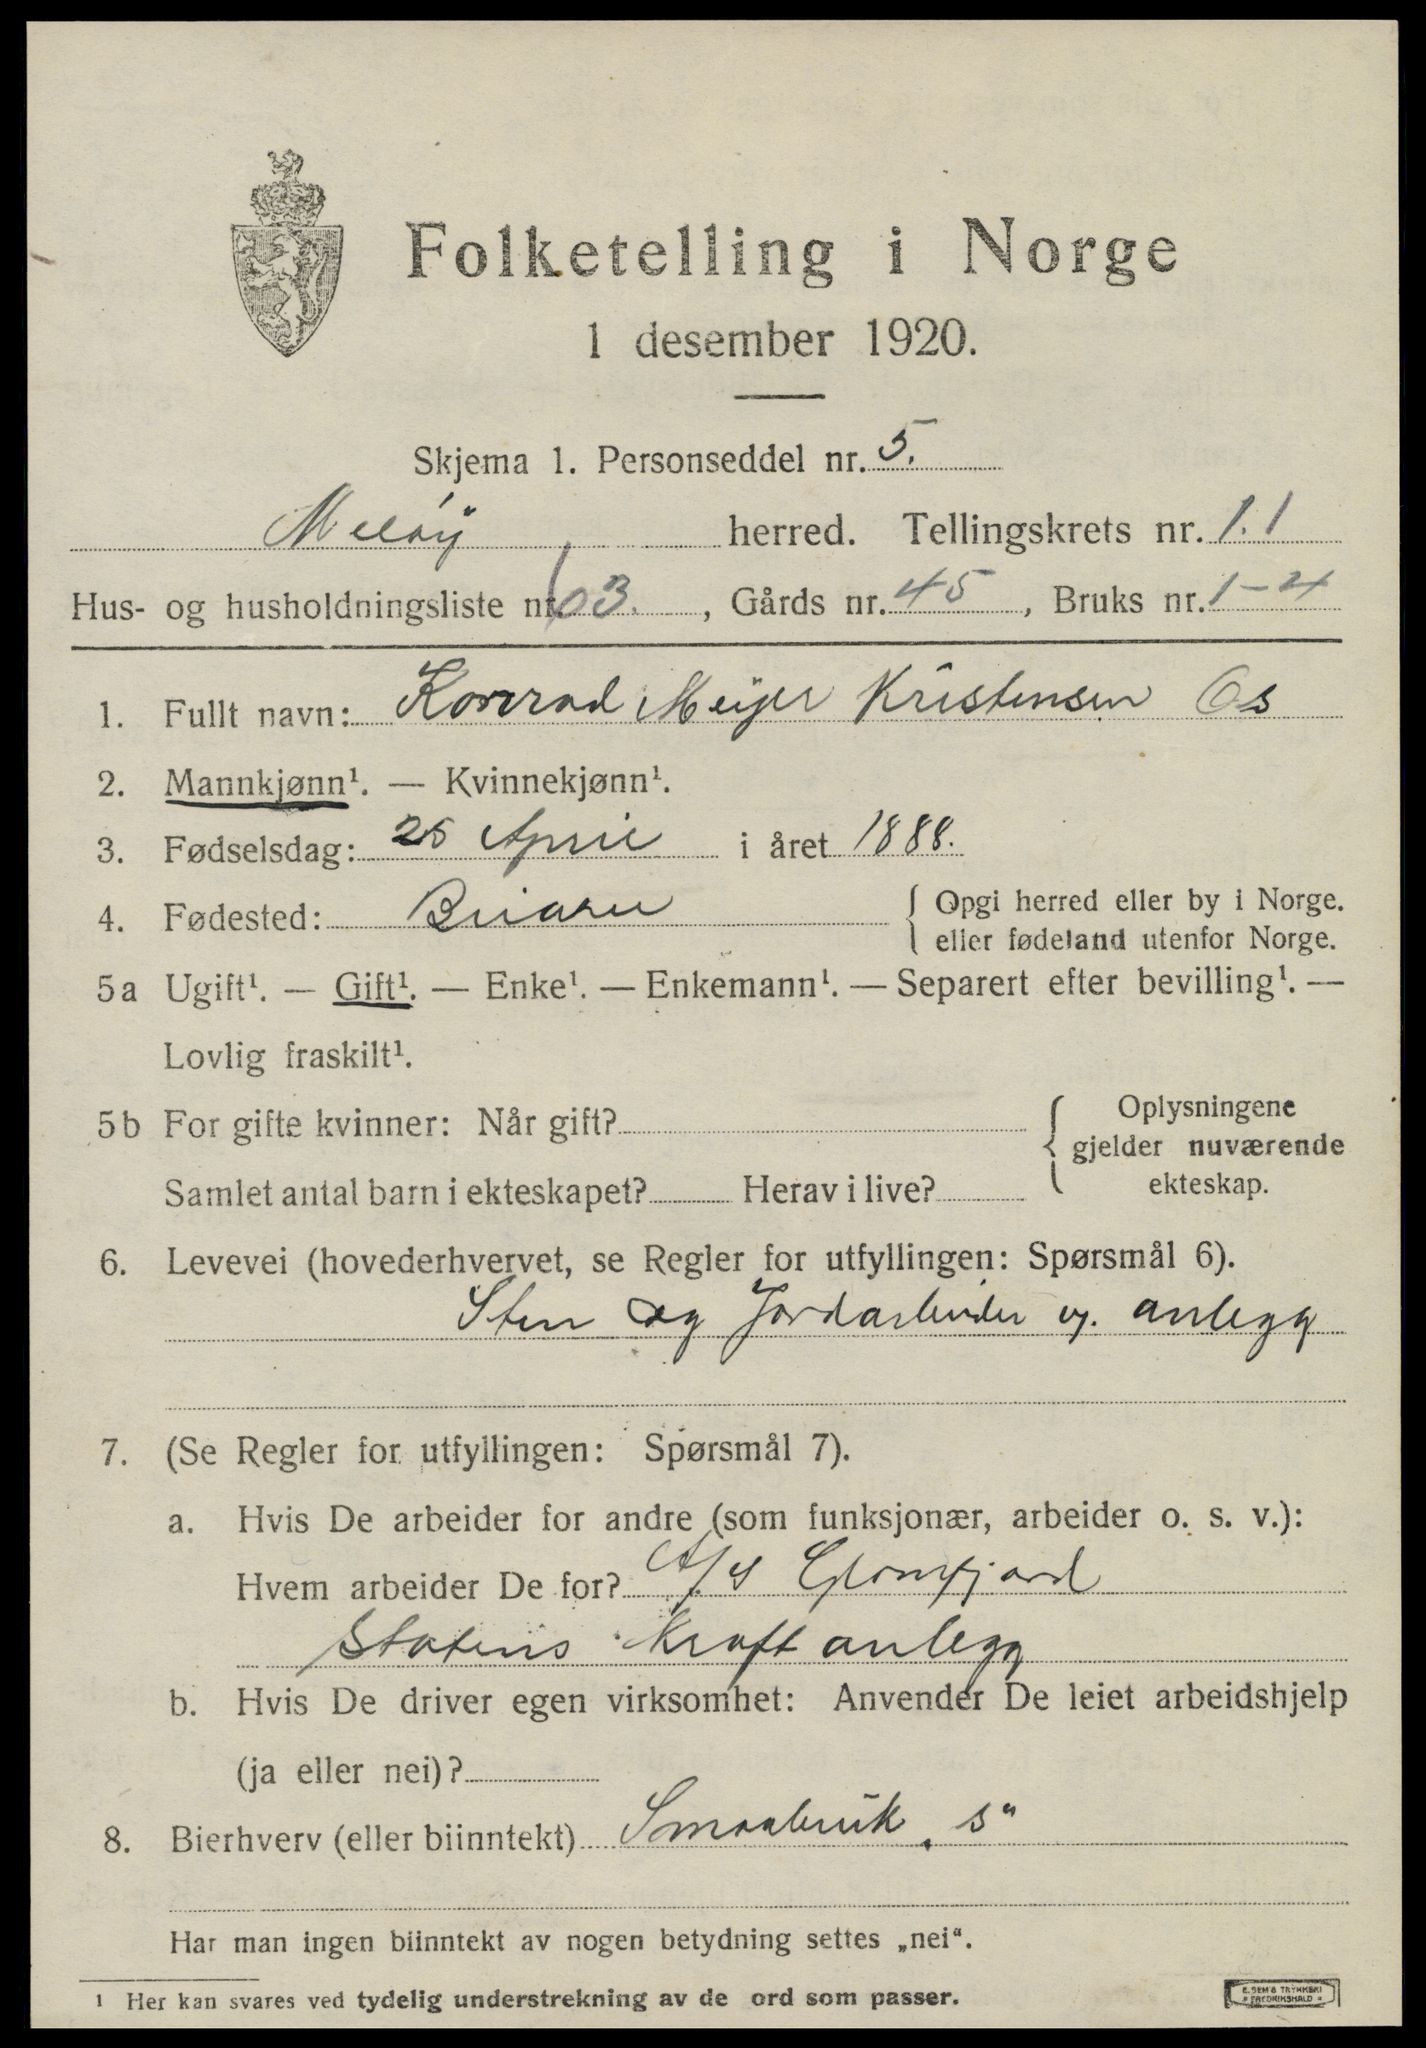 Folketelling i Norge
1 desember 1920.
Skjema 1. Personseddel nr. 5.
Meløy herred. Tellingskrets nr. 11
Hus- og husholdningsliste nr. 63., Gårds nr. 45, Bruks nr. 1-4
1. Fullt navn: Konrad Meyer Kristensen Os
2. Mannkjønn¹. — Kvinnekjønn¹.
3. Fødselsdag: 25 April i året 1888.
4. Fødested: { Opgi herred eller by i Norge.
eller fødeland utenfor Norge.
5a Ugift¹. — Gift¹. — Enke¹. — Enkemann¹. — Separert efter bevilling¹. —
Lovlig fraskilt¹.
5b For gifte kvinner: Når gift? { Oplysningene
gjelder nuværende
Samlet antal barn i ekteskapet? Herav i live? ekteskap.
6. Levevei (hovederhvervet, se Regler for utfyllingen: Spørsmål 6).
Sten og Jordarbeider v. anlegg
7. (Se Regler for utfyllingen: Spørsmål 7).
a. Hvis De arbeider for andre (som funksjonær, arbeider o. s. v.):
Hvem arbeider De for? A/S Glomfjord
Statens Kraftanlegg
b. Hvis De driver egen virksomhet: Anvender De leiet arbeidshjelp
(ja eller nei)?
8. Bierhverv (eller biinntekt) Smaabruk „s“
Har man ingen biinntekt av nogen betydning settes „nei“.
¹ Her kan svares ved tydelig understrekning av de ord som passer.
E. SEM'S TRYKKERI
FREDRIKSHALD